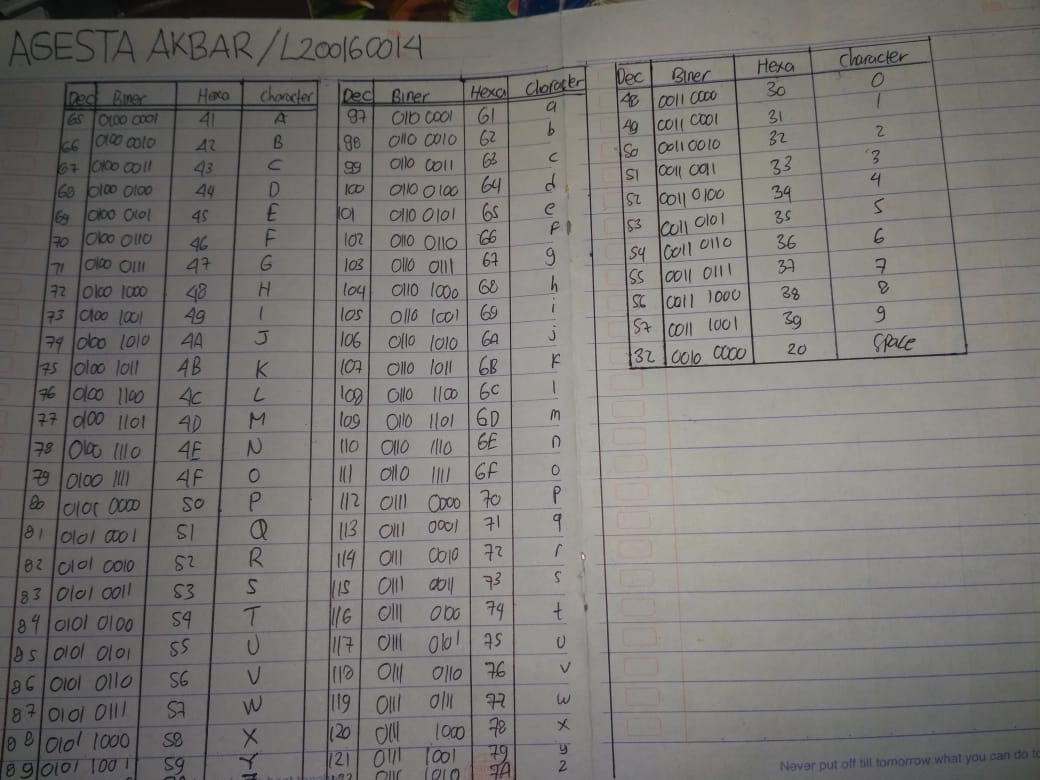 AGESTA AKBAR/L200160014
Dec Biner Hexa Character
65 0100 0001 41 A
66 0100 0010 42 B
67 0100 0011 43 C
68 0100 0100 44 D
69 0100 0101 45 E
70 0100 0110 46 F
71 0100 0111 47 G
72 0100 1000 48 H
73 0100 1001 49 I
74 0100 1010 4A J
75 0100 1011 4B K
76 0100 1100 4C L
77 0100 1101 4D M
78 0100 1110 4E N
79 0100 1111 4F O
80 0101 0000 50 P
81 0101 0001 51 Q
82 0101 0010 52 R
83 0101 0011 53 S
84 0101 0100 54 T
85 0101 0101 55 U
86 0101 0110 56 V
87 0101 0111 57 W
88 0101 1000 58 X
89 0101 1001 59 Y
Dec Biner Hexa Character
97 0110 0001 61 a
98 0110 0010 62 b
99 0110 0011 63 c
100 0110 0100 64 d
101 0110 0101 65 e
102 0110 0110 66 f
103 0110 0111 67 g
104 0110 1000 68 h
105 0110 1001 69 i
106 0110 1010 6A j
107 0110 1011 6B k
108 0110 1100 6C l
109 0110 1101 6D m
110 0110 1110 6E n
111 0110 1111 6F o
112 0111 0000 70 p
113 0111 0001 71 q
114 0111 0010 72 r
115 0111 0011 73 s
116 0111 0100 74 t
117 0111 0101 75 u
118 0111 0110 76 v
119 0111 0111 77 w
120 0111 1000 78 x
121 0111 1001 79 y
7A z
Dec Biner Hexa Character
48 0011 0000 30 0
49 0011 0001 31 1
50 0011 0010 32 2
51 0011 0011 33 3
52 0011 0100 34 4
53 0011 0101 35 5
54 0011 0110 36 6
55 0011 0111 37 7
56 0011 1000 38 8
57 0011 1001 39 9
32 0010 0000 20 Space
Never put off till tomorrow what you can do